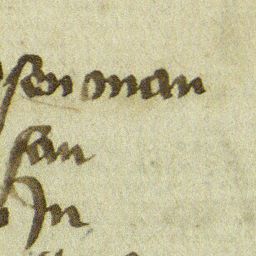 sen man
san
In